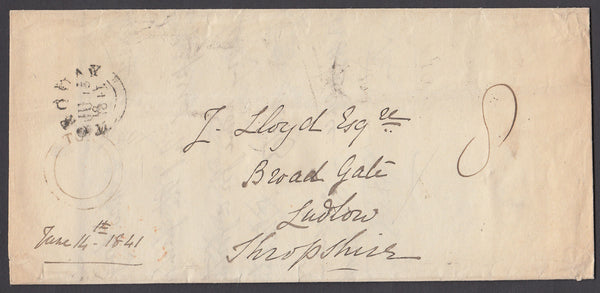 J. Lloyd Esqre
Broad Gate
Ludlow
Shropshire
8
June 14th 1841